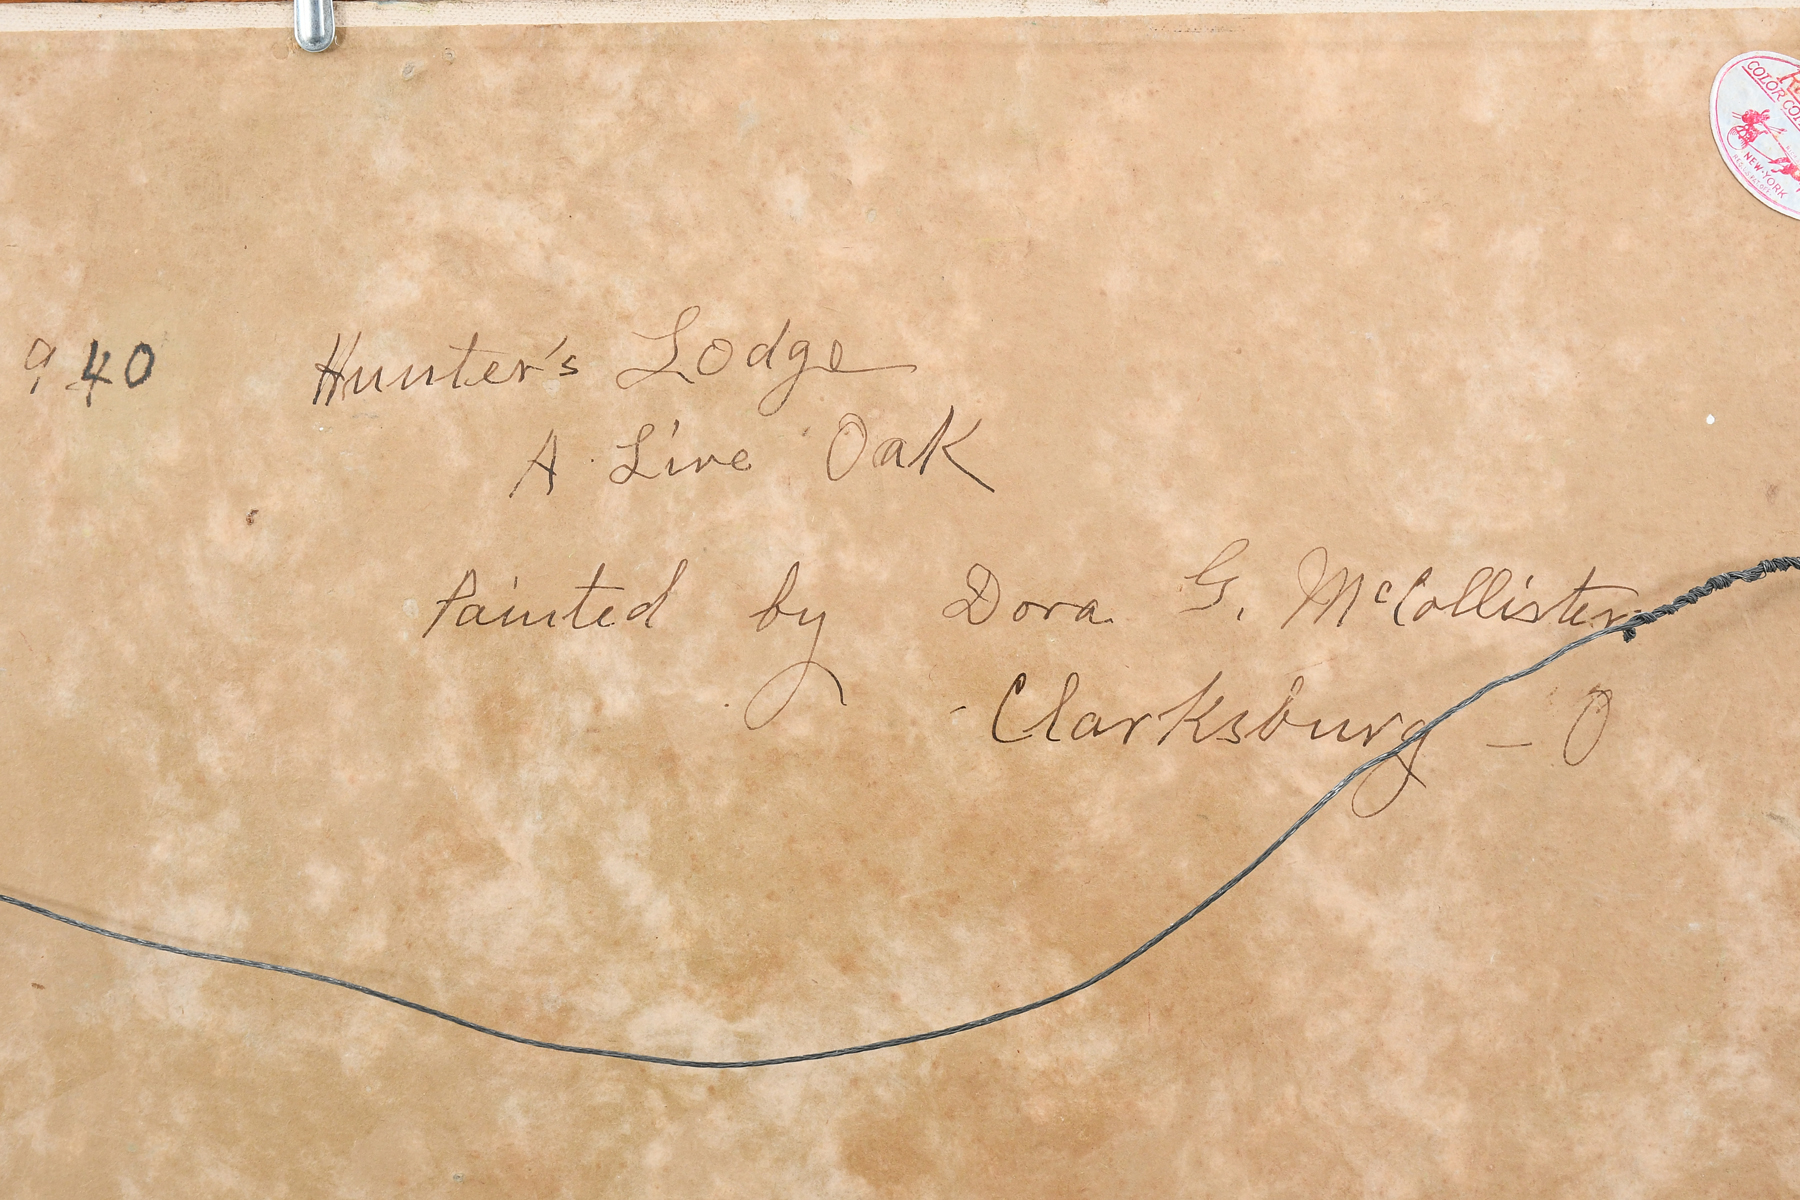 940 Hunter's Lodge
A Live Oak
Painted by Dora G. McCollister
Clarksburg - O
COLOR
NEW-YORK